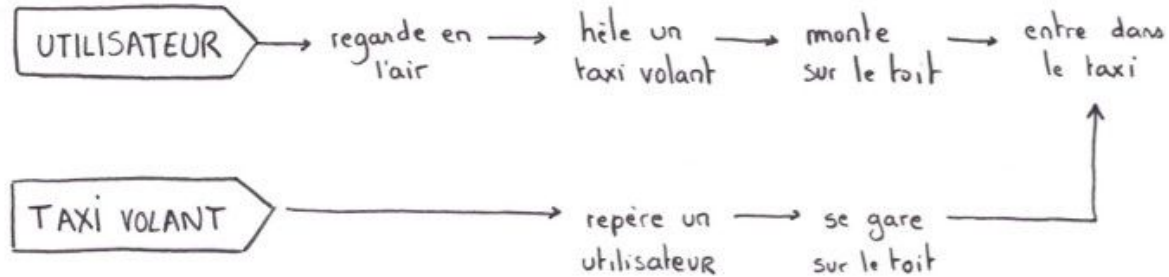 UTILISATEUR
regande en
l'air
hèle un
taxi volant
monte
sur le toit
entre dans
le taxi
TAXI VOLANT
repère un
utilisateur
se gare
sur le toit